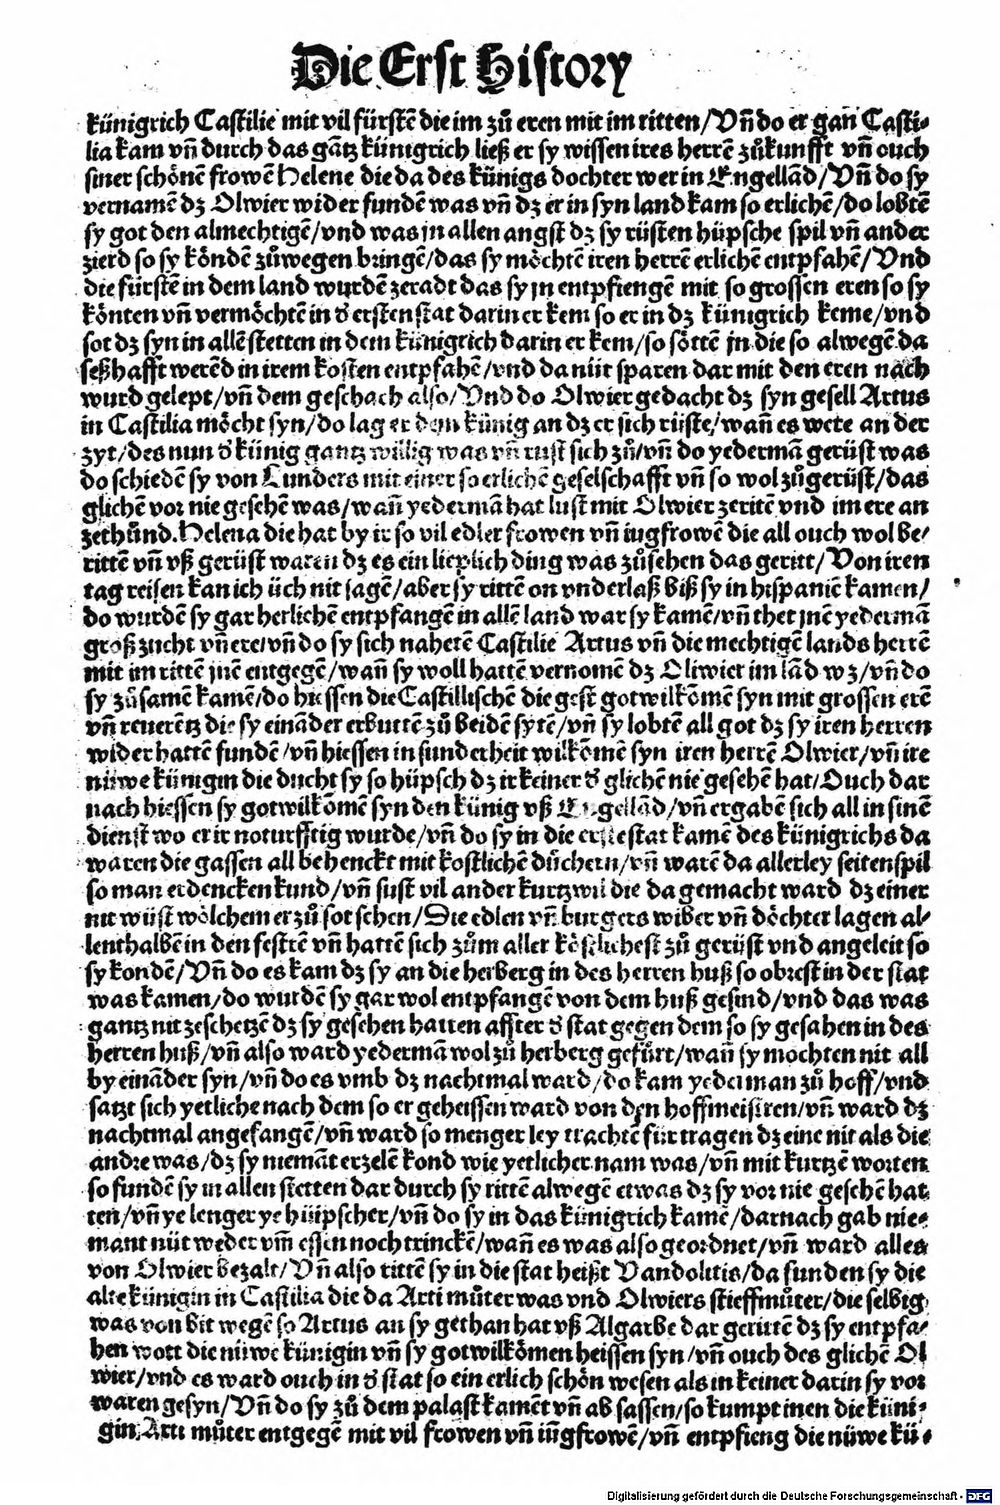 Die Erst History
künigrich Castilie mit vil fürstẽ die im zů eren mit im ritten/Vñ do er gan Casti-
lia kam vñ durch das gãtz künigrich ließ er sy wissen ires herrẽ zůkunfft vñ ouch
siner schönẽ frowẽ Helene die da des künigs dochter wer in Engellãd/Vñ do sy
vernamẽ dz Olwier wider fundẽ was vñ dz er in syn land kam so erlichẽ/do lobtẽ
sy got den almechtigẽ/vnd was in allen angst dz sy rüsten hüpsche spil vñ ander
zierd so sy köndẽ zůwegen bringẽ/das sy möchtẽ iren herrẽ erlichẽ entpfahẽ/Vnd
die fürstẽ in dem land wurdẽ zeradt das sy jn entpfiengẽ mit so grossen eren so sy
könten vñ vermöchtẽ in d̕ ersten stat darin er kem so er in dz künigrich keme/vnd
sot dz syn in allẽ stetten in dem künigrich darin er kem/so söttẽ jn die so alwegẽ da
seßhafft werẽd in irem kosten entpfahẽ/vnd da nüt sparen dar mit den eren nach
wurd gelept/vñ dem geschach also/Vnd do Olwier gedacht dz syn gesell Artus
in Castilia möcht syn/do lag er dem künig an dz er sich rüste/wañ es wete an der
zyt/des nun d̕ künig gantz willig was vñ rust sich zů/vñ do yedermã gerüst was
do schiedẽ sy von Lunders mit einer so erlichẽ geselschafft vñ so wol zůgerüst/das
glichẽ vor nie gesehẽ was/wañ yedermã hat lust mit Olwier zeritẽ vnd im ere an
zethůnd. Helena die hat by ir so vil edler frowen vñ iugfrowẽ die all ouch wol be-
rittẽ vñ vß gerüst waren dz es ein lieplich ding was zůsehen das geritt/Von iren
tag reisen kan ich üch nit sagẽ/aber sy rittẽ on vnderlaß biß sy in hispaniẽ kamen/
do wurdẽ sy gar herlichẽ entpfangẽ in allẽ land war sy kamẽ/vñ thet jnẽ yedermã
groß zucht vñ ere/vñ do sy sich naherẽ Castilie Artus vñ die mechtigẽ lands herrẽ
mit im rittẽ jnẽ entgegẽ/wañ sy woll hattẽ vernomẽ dz Oliwier im lãd wz/vñ do
sy zůsamẽ kamẽ/do hiessen die Castillischẽ die gest gotwilkõmẽ syn mit grossen erẽ
vñ reuerẽtz die sy einãder erbuttẽ zů beidẽ sytẽ/vñ sy lobtẽ all got dz sy iren herren
wider hattẽ fundẽ/vñ hiessen in sunderheit wilkõmẽ syn iren herrẽ Olwier/vñ ire
nüwe künigin die ducht sy so hüpsch dz ir keiner d̕ glichẽ nie gesehẽ hat/Ouch dar
nach hiessen sy gotwilkõmẽ syn den künig vß Engellãd/vñ ergabẽ sich all in sinẽ
dienst wo er ir noturfftig wurde/vñ do sy in die erste stat kamẽ des künigrichs da
waren die gassen all behenckt mit kostlichẽ důchern/vñ warẽ da allerley seitenspil
so man erdencken kund/vñ sust vil ander kurtzwil die da gemacht ward dz einer
nit wüst wölchem er zů sot sehen/Die edlen vñ burgers wiber vñ döchter lagen al-
lenthalbẽ in den festrẽ vñ hattẽ sich zům aller köstlichest zů gerüst vnd angeleit so
sy kondẽ/Vñ do es kam dz sy an die herberg in des herren huß so obrest in der stat
was kamen/do wurdẽ sy gar wol entpfangẽ von dem huß gesind/vnd das was
gantz nit zeschetzẽ dz sy gesehen hatten affter d̕ stat gegen dem so sy gesahen in des
herren huß/vñ also ward yedermã wol zů herberg gefůrt/wañ sy mochten nit all
by einãder syn/vñ do es vmb dz nachtmal ward/do kam yederman zů hoff/vnd
satzt sich yetliche nach dem so er geheissen ward von den hoffmeistren/vñ ward dz
nachtmal angefangẽ/vñ ward so menger ley trachtẽ für tragen dz eine nit als die
andre was/dz sy niemãt erzelẽ kond wie yetlicher nam was/vñ mit kurtzẽ worten
so fundẽ sy in allen stetten dar durch sy rittẽ alwegẽ etwas dz sy vor nie gesehẽ hat
ten/vñ ye lenger ye hüpscher/vñ do sy in das künigrich kamẽ/darnach gab nie-
mant nüt weder vm̃ essen noch trinckẽ/wañ es was also geordnet/vñ ward alles
von Olwier bezalt/Vñ also rittẽ sy in die stat heißt Vandolitis/da funden sy die
alte künigin in Castilia die da Arti můter was vnd Olwiers stieffmůter/die selbig
was von bit wegẽ so Artus an sy gethan hat vß Algarbe dar gerittẽ dz sy entpfa-
hen wott die nüwe künigin vñ sy gotwilkõmen heissen syn/vñ ouch des glichẽ Ol
wier/vnd es ward ouch in d̕ stat so ein erlich schön wesen als in keiner darin sy vor
waren gesyn/Vñ do sy zů dem palast kamẽt vñ ab sassen/so kumpt inen die küni-
gin Arti můter entgegẽ mit vil frowen vñ iũgfrowẽ/vñ entpfieng die nüwe kü-
Digitalisierung gefördert durch die Deutsche Forschungsgemeinschaft - DFG